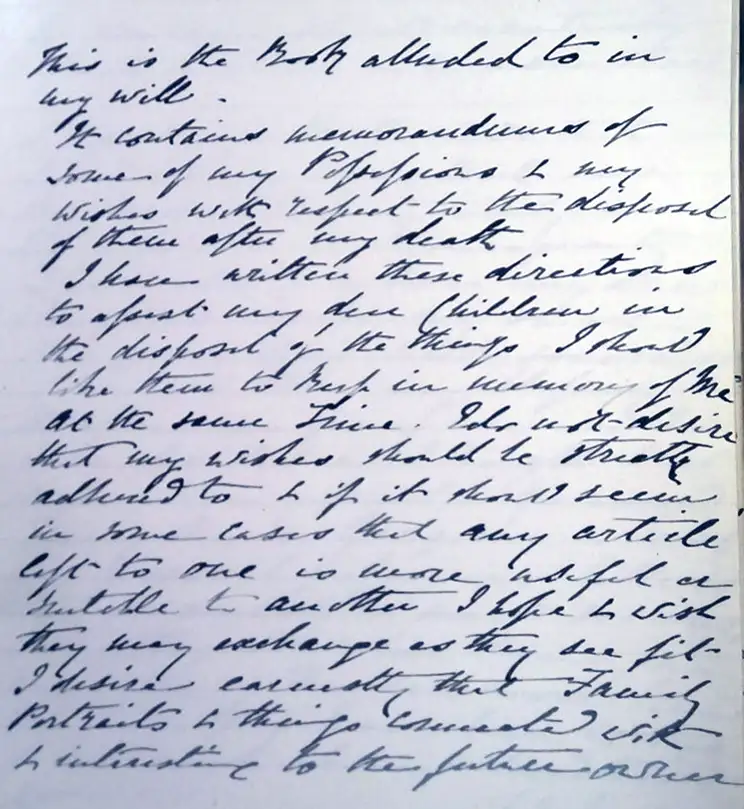 This is the Book alluded to in
my will -
It contains memorandums of
some of my Possessions & my
wishes with respect to the disposal
of them after my death
I have written these directions
to assist my dear Children in
the disposal of the things I should
like them to keep in memory of Me
at the same Time. I do not desire
that my wishes should be strictly
adhered to & if it should seem
in some cases that any article
left to one is more useful or
suitable to another I hope & wish
they may exchange as they see fit -
I desire earnestly that Family
Portraits & things connected with
& interesting to the future owner